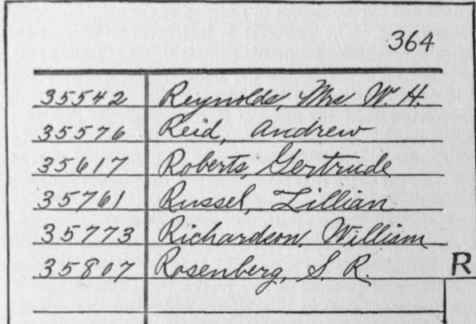 364
35542 Reynolds, Mrs W. H.
35576 Reid, Andrew
35617 Roberts, Gertrude
35761 Russel, Lillian
35773 Richardson, William
35807 Rosenberg, S. R.
R